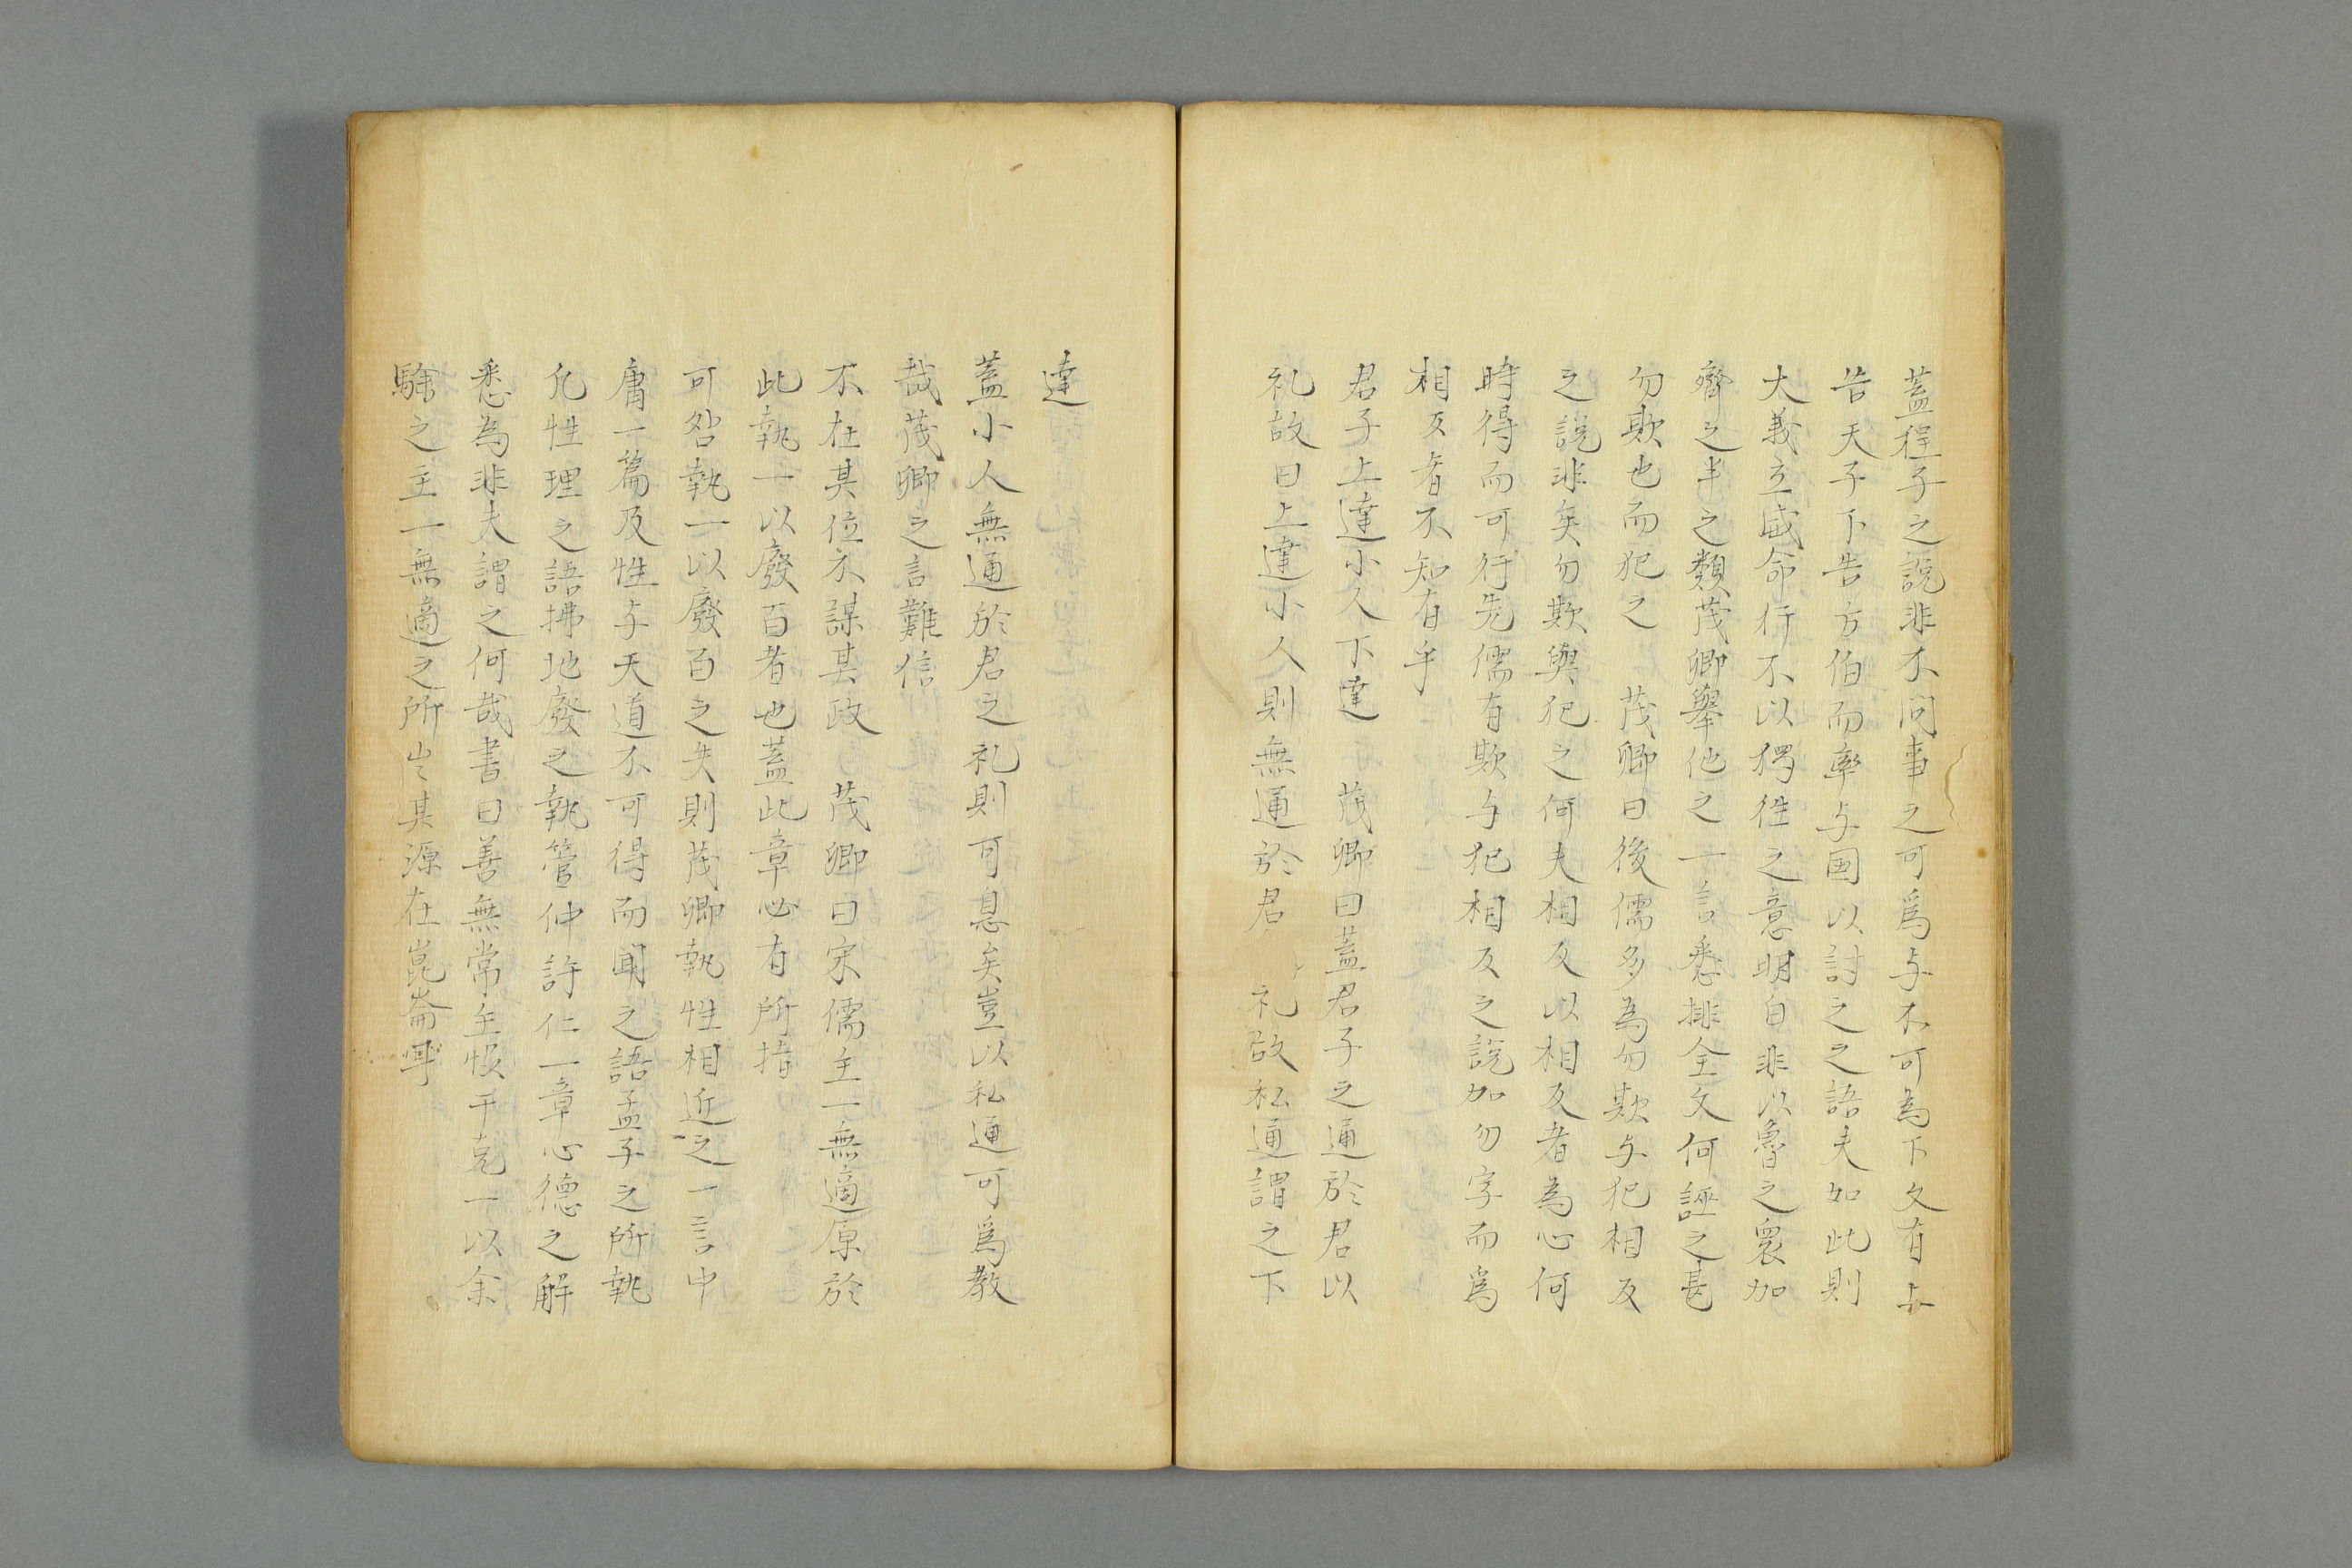 蓋程子之說非不問事之可爲与不可為下文有上
告天子下告方伯而率与国以討之之語夫如此則
大義立威命行不以獨徃之意明自非以魯之衆加
齊之半之類茂卿舉他之一言悉排全文何誣之甚
勿欺也而犯之 茂卿曰後儒多為勿欺与犯相反
之說非矣勿欺與犯之何夫相反以相反者為心何
時得而可行先儒有欺与犯相反之說加勿字而爲
相反者不知有乎
君子上達小人下達 茂卿曰蓋君子之通於君以
礼故曰上達小人則無通於君 礼故私通謂之下
達
蓋小人無通於君之礼則可息矣豈以私通可爲教
哉茂卿之言難信
不在其位不謀其政 茂卿曰宋儒主一無適原於
此執一以廢百者也蓋此章必有所指
可咎執一以廢百之失則茂卿執性相近之一言中
庸一篇及性与天道不可得而聞之語孟子之所執
凡性理之語拂地廢之執管仲許仁一章心德之解
悉為非夫謂之何哉書曰善無常主恊于克一以余
驗之主一無適之所出其源在崑崙乎